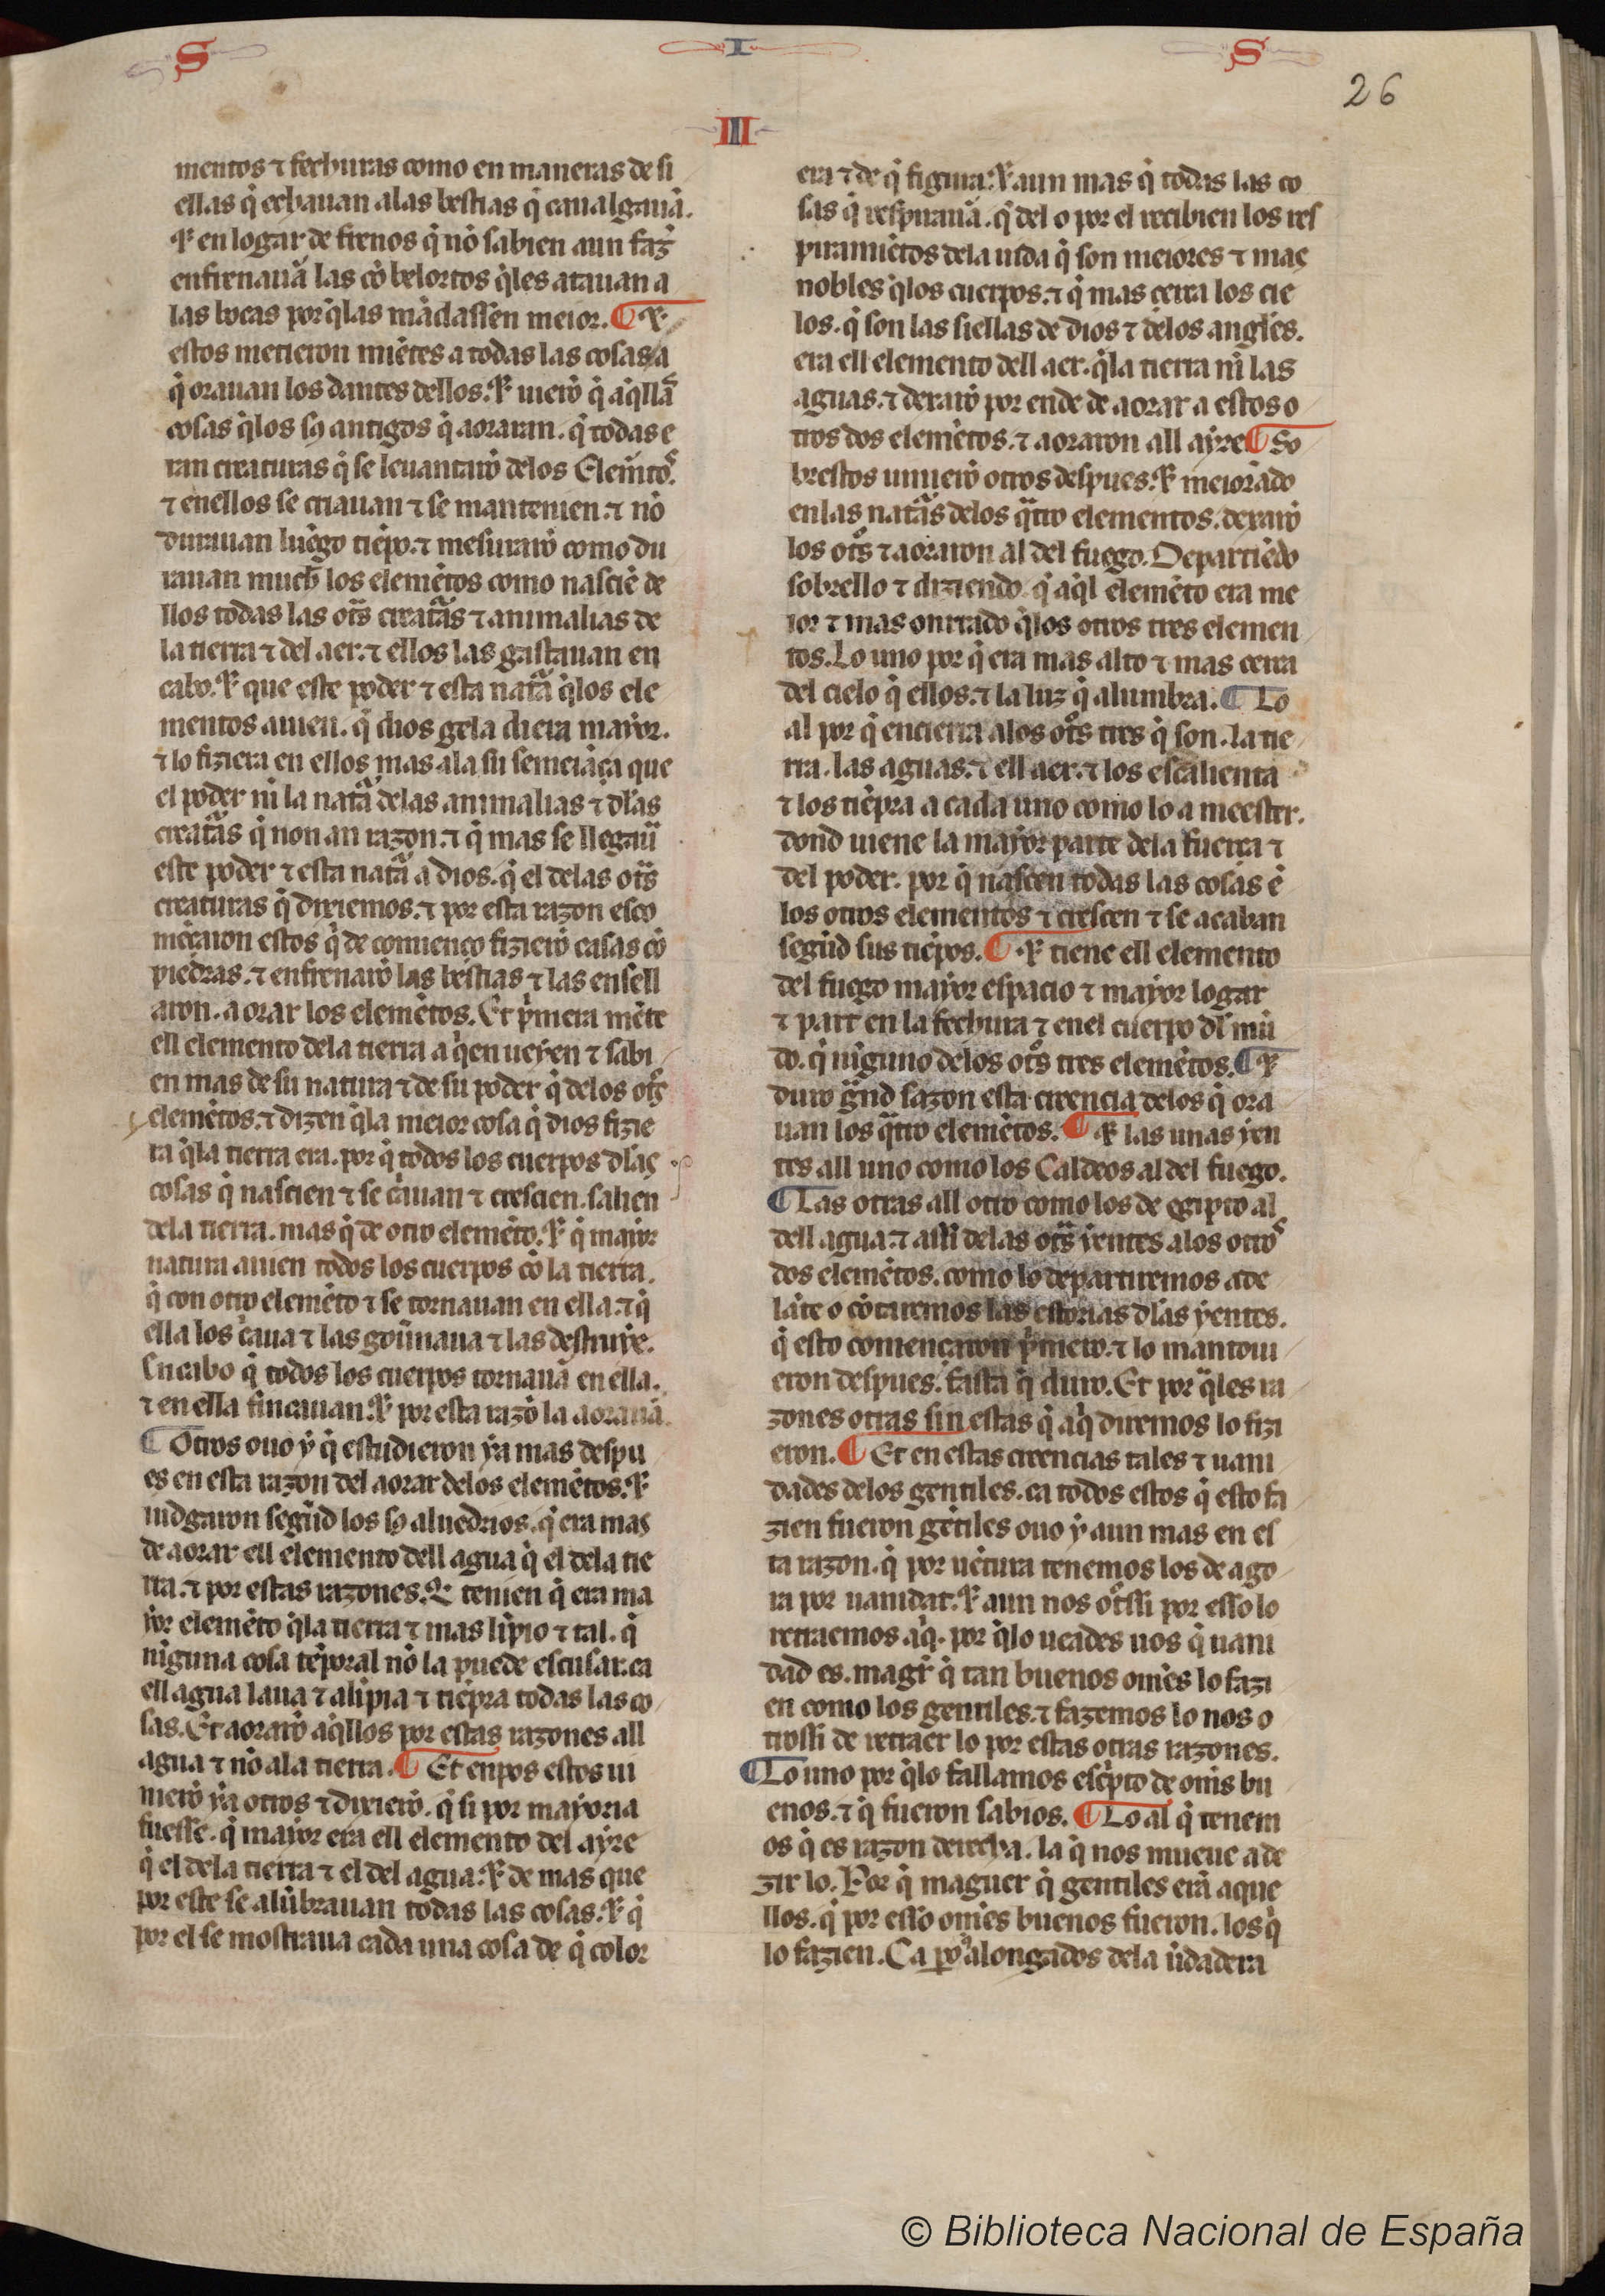 S I S
26
III
mentos ⁊ fechuras como en maneras de si
ellas q̃ echauan alas bestias q̃ caualgauã.
⁊ en logar de frenos q̃ nõ sabien aun faz̃
enfrenauã las cõ belortos q̃les atauan a
las bocas por q̃las mãdassen meior. ¶ ⁊
estos metieron miẽtes a todas las cosas a
q̃ orauan los dantes dellos. ⁊ uierõ q̃ aq̃llas
cosas q̃los sꝯ antigos q̃ aoraran. q̃ todas e
ran creaturas q̃ se leuantarõ delos Elem̃tos.
⁊ enellos se criauan ⁊ se mantenien. ⁊ nõ
durauan luẽgo tiẽpo. ⁊ mesurarõ como du
rauan much̃ los elemẽtos como nasciẽ de
llos todas las ot̃s creat̃as ⁊ animalias de
la tierra ⁊ del aer. ⁊ ellos las gastauan en
cabo. ⁊ que este poder ⁊ esta nat̃a q̃los ele
mentos auien. q̃ dios gela diera mayor.
⁊ lo fiziera en ellos mas ala su semeiãça que
el poder ni la nat̃a delas animalias ⁊ dl̃as
creat̃as q̃ non an razon. ⁊ q̃ mas se llegaũ
este poder ⁊ esta nat̃a a dios. q̃ el delas ot̃s
creaturas q̃ dixiemos. ⁊ por esta razon esco
mẽçaron estos q̃ de comienço fizierõ casas cõ
piedras. ⁊ enfrenarõ las bestias ⁊ las ensell
aron. a orar los elemẽtos. Et p̃mera mẽte
ell elemento dela tierra a q̃en ueyen ⁊ sabi
en mas de su natura ⁊ de su poder q̃ delos ot̃s
elemẽtos. ⁊ dizen q̃la meior cosa q̃ dios fizie
ra q̃la tierra era. por q̃ todos los cuerpos dl̃as
cosas q̃ nascien ⁊ se c̃auan ⁊ crescien. salien
dela tierra. mas q̃ de otro elemẽto. ⁊ q̃ mayor
natura auien todos los cuerpos cõ la tierra.
q̃ con otro elemẽto ⁊ se tornauan en ella. ⁊ q̃
ella los c̃aua ⁊ las gou̾naua ⁊ las destruye.
En cabo q̃ todos los cuerpos tornauã en ella.
⁊ en ella fincauan. ⁊ por esta razõ la aorauã.
¶ Otros ouo ẏ q̃ estudieron ya mas despu
es en esta razon del aorar delos elemẽtos. ⁊
iudgaron segũd los sꝯ aluedrios. q̃ era mas
de aorar ell elemento dell agua q̃ el dela tie
rra. ⁊ por estas razones. ⁊ tenien q̃ era ma
yor elemẽto q̃la tierra ⁊ mas lĩpio ⁊ tal. q̃
nĩguna cosa tẽporal nõ la puede escusar. ca
ell agua laua ⁊ alĩpia ⁊ tiẽpra todas las co
sas. Et aorarõ aq̃llos por estas razones all
agua ⁊ nõ ala tierra. ¶ Et enpos estos ui
nierõ ya otros ⁊ dixierõ. q̃ si por mayoria
fuesse. q̃ mayor era ell elemento del ayre
q̃ el dela tierra ⁊ el del agua. ⁊ de mas que
por este se alũbrauan todas las cosas. ⁊ q̃
por el se mostraua cada una cosa de q̃ color
era ⁊ de q̃ figura. ⁊ aun mas q̃ todas las co
sas q̃ respirauã. q̃ del o por el recibien los res
piramiẽtos dela uida q̃ son meiores ⁊ mas
nobles q̃los cuerpos. ⁊ q̃ mas cerca los cie
los. q̃ son las siellas de dios ⁊ delos angl̃es.
era ell elemento dell aer. q̃la tierra ni las
aguas. ⁊ dexarõ por ende de aorar a estos o
tros dos elemẽtos. ⁊ aoraron all ayre ¶ So
brestos uinierõ otros despues. ⁊ meiorãdo
en las nat̃as delos q̃tro elementos. dexarõ
los ot̃s ⁊ aoraron al del fuego. Departiẽdo
sobrello ⁊ diziendo. q̃ aq̃l elemẽto era me
ior ⁊ mas onrrado q̃los otros tres elemen
tos. Lo uno por q̃ era mas alto ⁊ mas cerca
del cielo q̃ ellos. ⁊ la luz q̃ alumbra. ¶ Lo
al por q̃ encierra alos ot̃s tres q̃ son. la tie
rra. las aguas. ⁊ ell aer. ⁊ los escalienta
⁊ los tiẽpra a cada uno como lo a meester.
dond uiene la mayor parte dela fuerça ⁊
del poder. por q̃ nascen todas las cosas ẽ
los otros elementos ⁊ crescen ⁊ se acaban
segũd sus tiẽpos. ¶ ⁊ tiene ell elemento
del fuego mayor espacio ⁊ mayor logar
⁊ part en la fechura ⁊ enel cuerpo dl̃ mũ
do. q̃ nĩguno delos ot̃s tres elemẽtos. ¶ ⁊
duro g̃nd sazon esta creencia delos q̃ ora
uan los q̃tro elemẽtos. ¶ ⁊ las unas yen
tes all uno como los Caldeos al del fuego.
¶ Las otras all otro como los de egipto al
dell agua. ⁊ assi delas ot̃s yentes alos otros
dos elemẽtos. como lo departiremos ade
lãte o cõtaremos las estorias dl̃as yentes.
q̃ esto començaron p̃mero. ⁊ lo mantoui
eron despues. fasta q̃ duro. Et por q̃les ra
zones otras sin estas q̃ aq̃ diremos lo fizi
eron. ¶ Et en estas creencias tales ⁊ uani
dades delos gentiles. ca todos estos q̃ esto fa
zien fueron gẽtiles ouo ẏ aun mas en es
ta razon. q̃ por uẽtura tenemos los de ago
ra por uanidat. ⁊ aun nos ot̃ssi por esso lo
retraemos aq̃. por q̃lo ueades uos q̃ uani
dad es. magr̃ q̃ tan buenos om̃es lo fazi
en como los gentiles. ⁊ fazemos lo nos o
trossi de retraer lo por estas otras razones.
¶ Lo uno por q̃lo fallamos esc̃pto de om̃s bu
enos. ⁊ q̃ fueron sabios. ¶ Lo al q̃ tenem
os q̃ es razon derecha. la q̃ nos mueue a de
zir lo. Por q̃ maguer q̃ gentiles erã aque
llos. q̃ por esso om̃es buenos fueron. los q̃
lo fazien. Ca ꝑo alongados dela u̾dadera
© Biblioteca Nacional de España